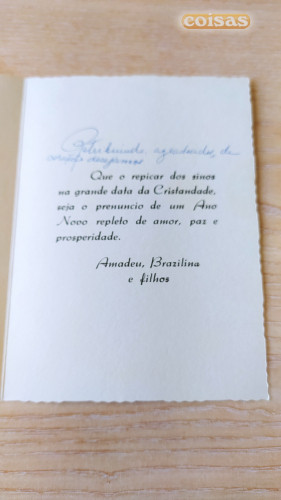 coisas
agradecidos, de
coração desejamos
Que o repicar dos sinos
na grande data da Cristandade,
seja o prenuncio de um Ano
Novo repleto de amor, paz e
prosperidade.
Amadeu, Brazilina
e filhos